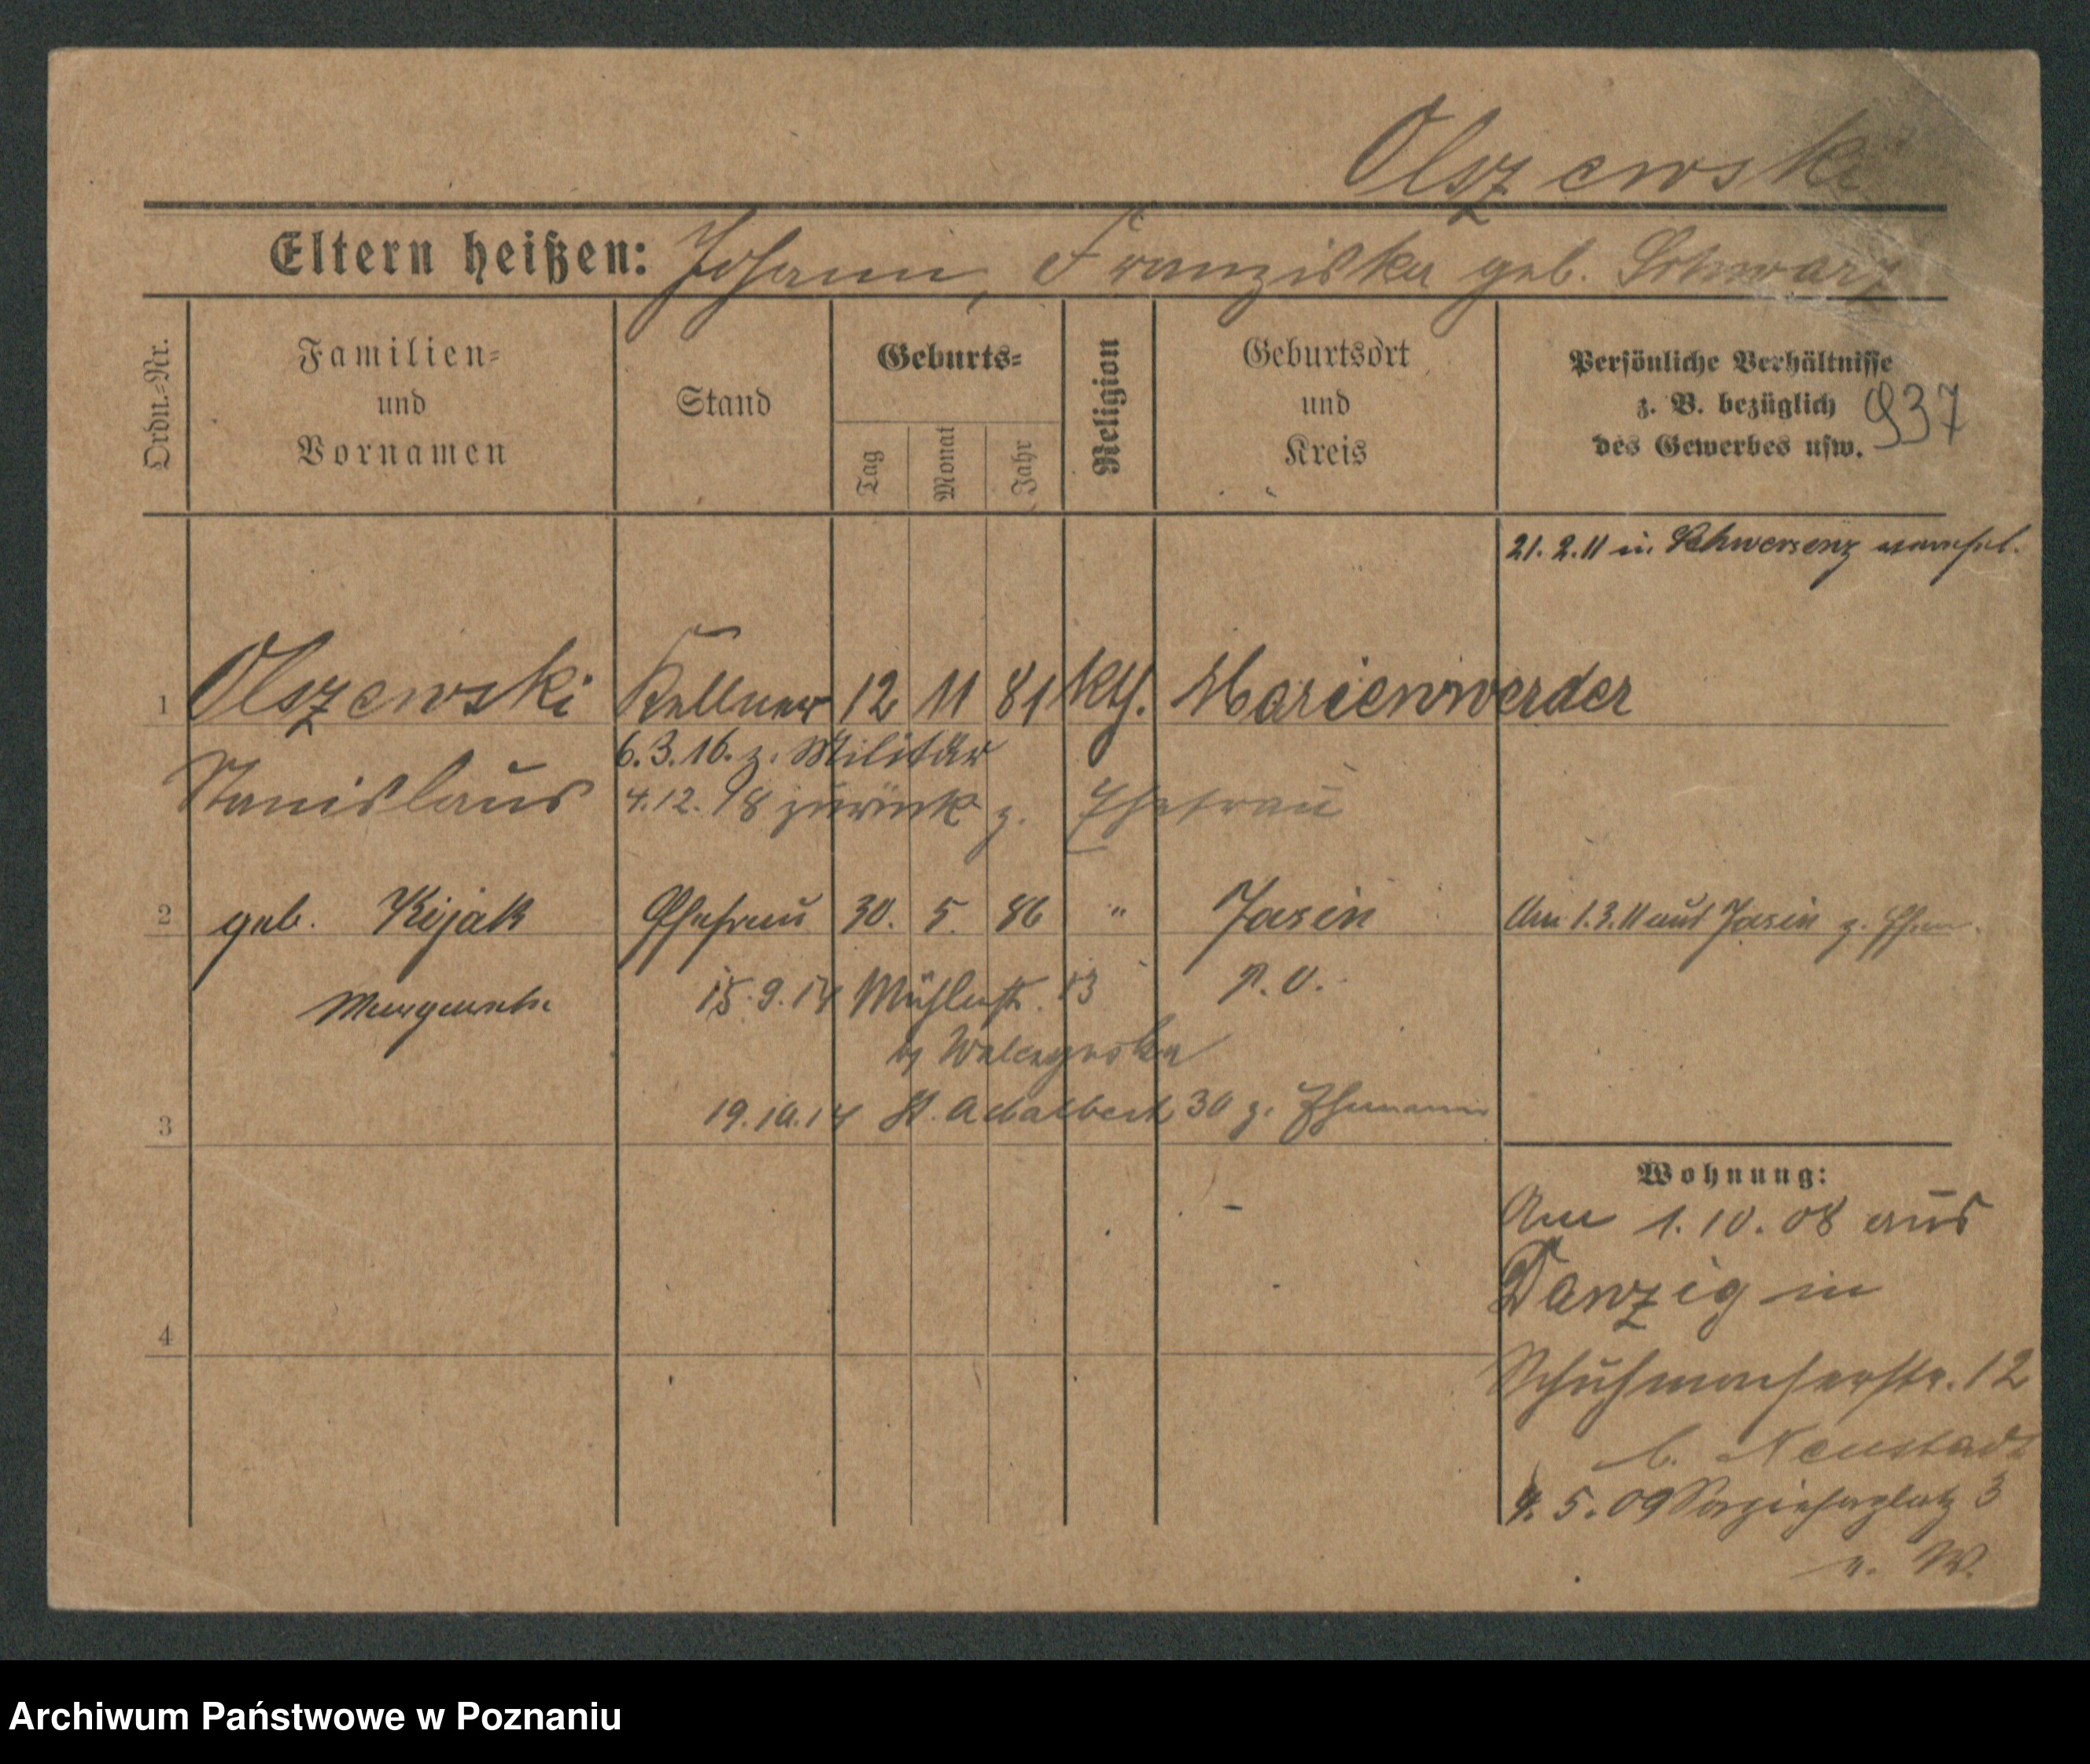 Olszewski
Eltern heißen: Johann, Franziska geb. Schwarz
Ordn.-Nr.
Familien- und Vornamen
Stand
Geburts-
Tag
Monat
Jahr
Religion
Geburtsort und Kreis
Persönliche Verhältnisse
z. B. bezüglich
des Gewerbes usw.
937
21. 2. 11 in Schwersenz
1 Olszewski Kellner 12 11 81 kth. Marienwerder
6. 3. 16. z. Militär
Stanislaus 4. 12. 18 zurück z. Ehefrau
2 geb. Kijak Ehefrau 30. 5. 86 " Jasin Am 1. 3. 11 aus Jasin z. Ehem.
Margarethe 15. 9. 14 Mühlenstr. 13 P. O.
19. 10. 14 St. Adalbert 30 z. Ehemann
3
Wohnung:
Am 1. 10. 08 aus
Danzig in
4
Schuhmacherstr. 12
b. Neustadt
4. 5. 09 Sapiehaplatz 3
n. W.
Archiwum Państwowe w Poznaniu